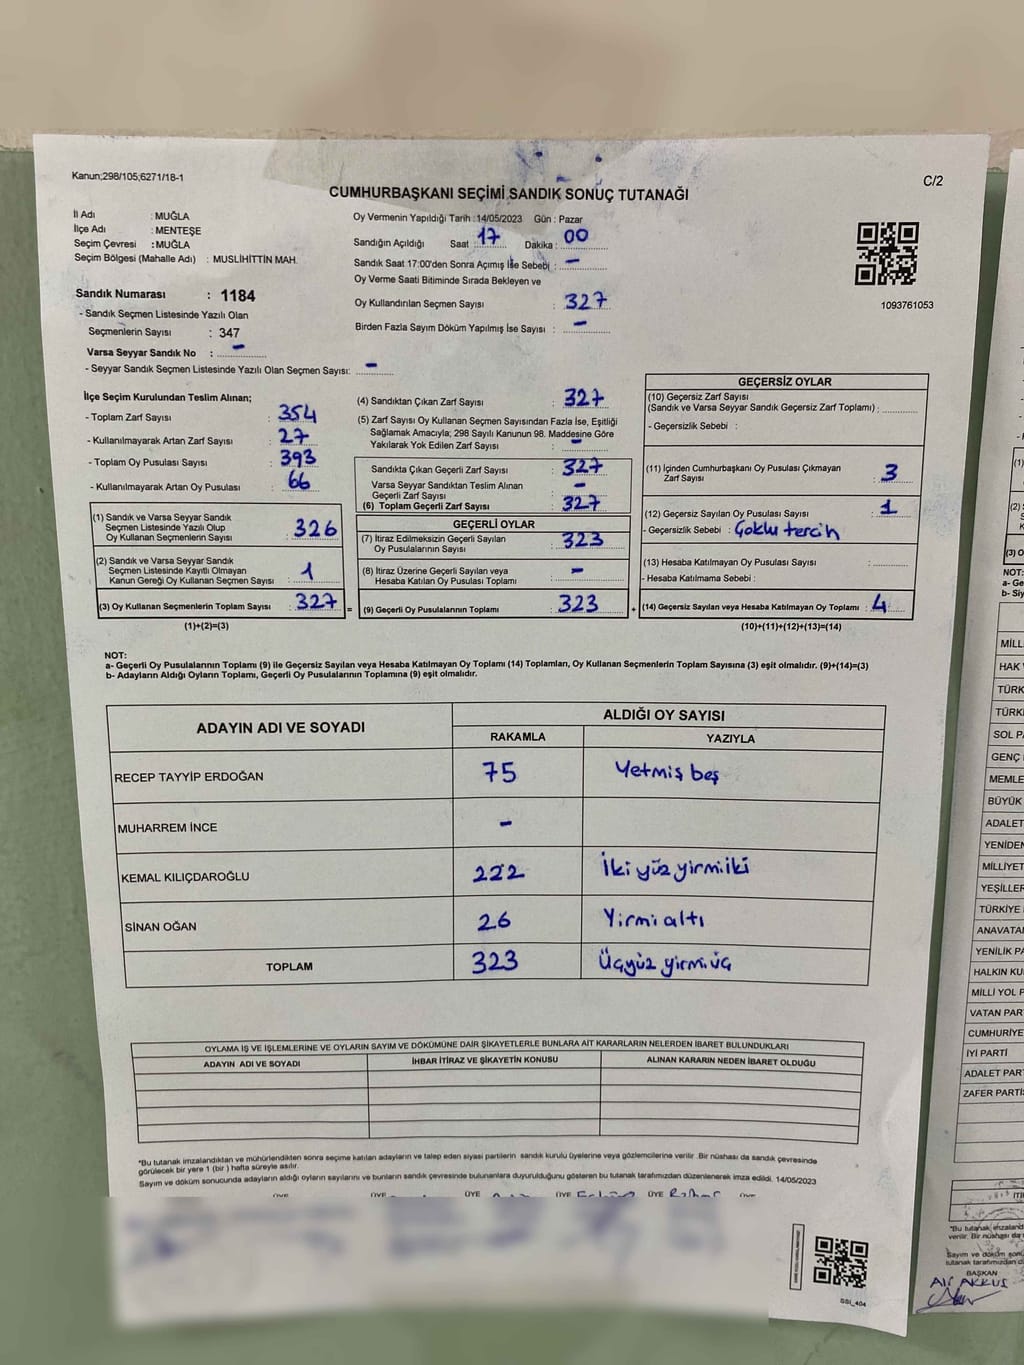 Kanun;298/105;6271/18-1
C/2
CUMHURBAŞKANI SEÇİMİ SANDIK SONUÇ TUTANAĞI
İl Adı : MUĞLA
İlçe Adı : MENTEŞE
Seçim Çevresi : MUĞLA
Seçim Bölgesi (Mahalle Adı) : MUSLİHİTTİN MAH.
Sandık Numarası : 1184
- Sandık Seçmen Listesinde Yazılı Olan
Seçmenlerin Sayısı : 347
Varsa Seyyar Sandık No : -
- Seyyar Sandık Seçmen Listesinde Yazılı Olan Seçmen Sayısı: -
Oy Vermenin Yapıldığı Tarih : 14/05/2023 Gün : Pazar
Sandığın Açıldığı Saat : 17 Dakika : 00
Sandık Saat 17:00'den Sonra Açımış İse Sebebi : -
Oy Verme Saati Bitiminde Sırada Bekleyen ve
Oy Kullandırılan Seçmen Sayısı : 327
Birden Fazla Sayım Döküm Yapılmış İse Sayısı : -
1093761053
İlçe Seçim Kurulundan Teslim Alınan;
- Toplam Zarf Sayısı : 354
- Kullanılmayarak Artan Zarf Sayısı : 27
- Toplam Oy Pusulası Sayısı : 393
- Kullanılmayarak Artan Oy Pusulası : 66
(1) Sandık ve Varsa Seyyar Sandık
Seçmen Listesinde Yazılı Olup
Oy Kullanan Seçmenlerin Sayısı : 326
(2) Sandık ve Varsa Seyyar Sandık
Seçmen Listesinde Kayıtlı Olmayan
Kanun Gereği Oy Kullanan Seçmen Sayısı : 1
(3) Oy Kullanan Seçmenlerin Toplam Sayısı : 327 =
(1)+(2)=(3)
(4) Sandıktan Çıkan Zarf Sayısı : 327
(5) Zarf Sayısı Oy Kullanan Seçmen Sayısından Fazla İse, Eşitliği
Sağlamak Amacıyla; 298 Sayılı Kanunun 98. Maddesine Göre
Yakılarak Yok Edilen Zarf Sayısı : -
Sandıkta Çıkan Geçerli Zarf Sayısı : 327
Varsa Seyyar Sandıktan Teslim Alınan
Geçerli Zarf Sayısı : -
(6) Toplam Geçerli Zarf Sayısı : 327
GEÇERLİ OYLAR
(7) İtiraz Edilmeksizin Geçerli Sayılan
Oy Pusulalarının Sayısı : 323
(8) İtiraz Üzerine Geçerli Sayılan veya
Hesaba Katılan Oy Pusulası Toplamı : -
(9) Geçerli Oy Pusulalarının Toplamı : 323 +
GEÇERSİZ OYLAR
(10) Geçersiz Zarf Sayısı
(Sandık ve Varsa Seyyar Sandık Geçersiz Zarf Toplamı) :
- Geçersizlik Sebebi :
(11) İçinden Cumhurbaşkanı Oy Pusulası Çıkmayan
Zarf Sayısı : 3
(12) Geçersiz Sayılan Oy Pusulası Sayısı : 1
- Geçersizlik Sebebi : Çoklu tercih
(13) Hesaba Katılmayan Oy Pusulası Sayısı :
- Hesaba Katılmama Sebebi :
(14) Geçersiz Sayılan veya Hesaba Katılmayan Oy Toplamı : 4
(10)+(11)+(12)+(13)=(14)
NOT:
a- Geçerli Oy Pusulalarının Toplamı (9) ile Geçersiz Sayılan veya Hesaba Katılmayan Oy Toplamı (14) Toplamları, Oy Kullanan Seçmenlerin Toplam Sayısına (3) eşit olmalıdır. (9)+(14)=(3)
b- Adayların Aldığı Oyların Toplamı, Geçerli Oy Pusulalarının Toplamına (9) eşit olmalıdır.
ADAYIN ADI VE SOYADI ALDIĞI OY SAYISI
RAKAMLA YAZIYLA
RECEP TAYYİP ERDOĞAN 75 Yetmiş beş
MUHARREM İNCE -
KEMAL KILIÇDAROĞLU 222 İki yüz yirmi iki
SİNAN OĞAN 26 Yirmi altı
TOPLAM 323 Üçyüz yirmi üç
OYLAMA İŞ VE İŞLEMLERİNE VE OYLARIN SAYIM VE DÖKÜMÜNE DAİR ŞİKAYETLERLE BUNLARA AİT KARARLARIN NELERDEN İBARET BULUNDUKLARI
ADAYIN ADI VE SOYADI İHBAR İTİRAZ VE ŞİKAYETİN KONUSU ALINAN KARARIN NEDEN İBARET OLDUĞU
*Bu tutanak imzalandıktan ve mühürlendikten sonra seçime katılan adayların ve talep eden siyasi partilerin sandık kurulu üyelerine veya gözlemcilerine verilir. Bir nüshası da sandık çevresinde
görülecek bir yere 1 (bir) hafta süreyle asılır.
Sayım ve döküm sonucunda adayların aldığı oyların sayılarını ve bunların sandık çevresinde bulunanlara duyurulduğunu gösteren bu tutanak tarafımızdan düzenlenerek imza edildi. 14/05/2023
ÜYE ÜYE ÜYE ÜYE ÜYE ÜYE
SSİ_404
NOT:
a- Ge
b- Siy
MİLL
HAK
TÜRK
TÜRKİ
SOL PA
GENÇ
MEMLE
BÜYÜK
ADALET
YENİDEN
MİLLİYET
YEŞİLLER
TÜRKİYE
ANAVATA
YENİLİK PA
HALKIN KU
MİLLİ YOL P
VATAN PAR
CUMHURİYE
İYİ PARTİ
ADALET PAR
ZAFER PARTİS
*Bu tutanak imzaland
verilir. Bir nüshası da
Sayım ve döküm son
tutanak tarafımızdan d
BAŞKAN
Ali AKKUŞ